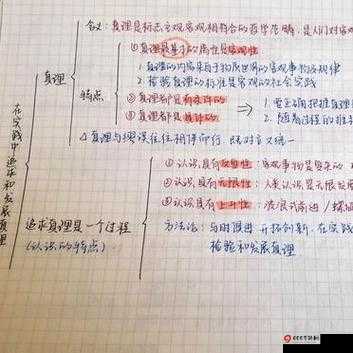 含义：真理是标志主观客观相符合的哲学范畴，是人们对客观
①真理最基本的属性是客观性
1.真理的内容来自于物质世界的客观事物及规律
2.检验真理的标准是客观的社会实践
真理
特点
②真理都是有条件的
③真理都是具体的
⇒
1.要正确把握真理
2.随着过程的推
△真理与谬误往往相伴而行 既对立又统一
在实践中追求和发展真理
①认识具有反复性：客观事物是复杂的
②认识具有无限性：人类认识是无限发展
③认识具有上升性：波浪式前进／螺旋
追求真理是一个过程
(认识的特点)
方法论：与时俱进 开拓创新 在实践
检验和发展真理